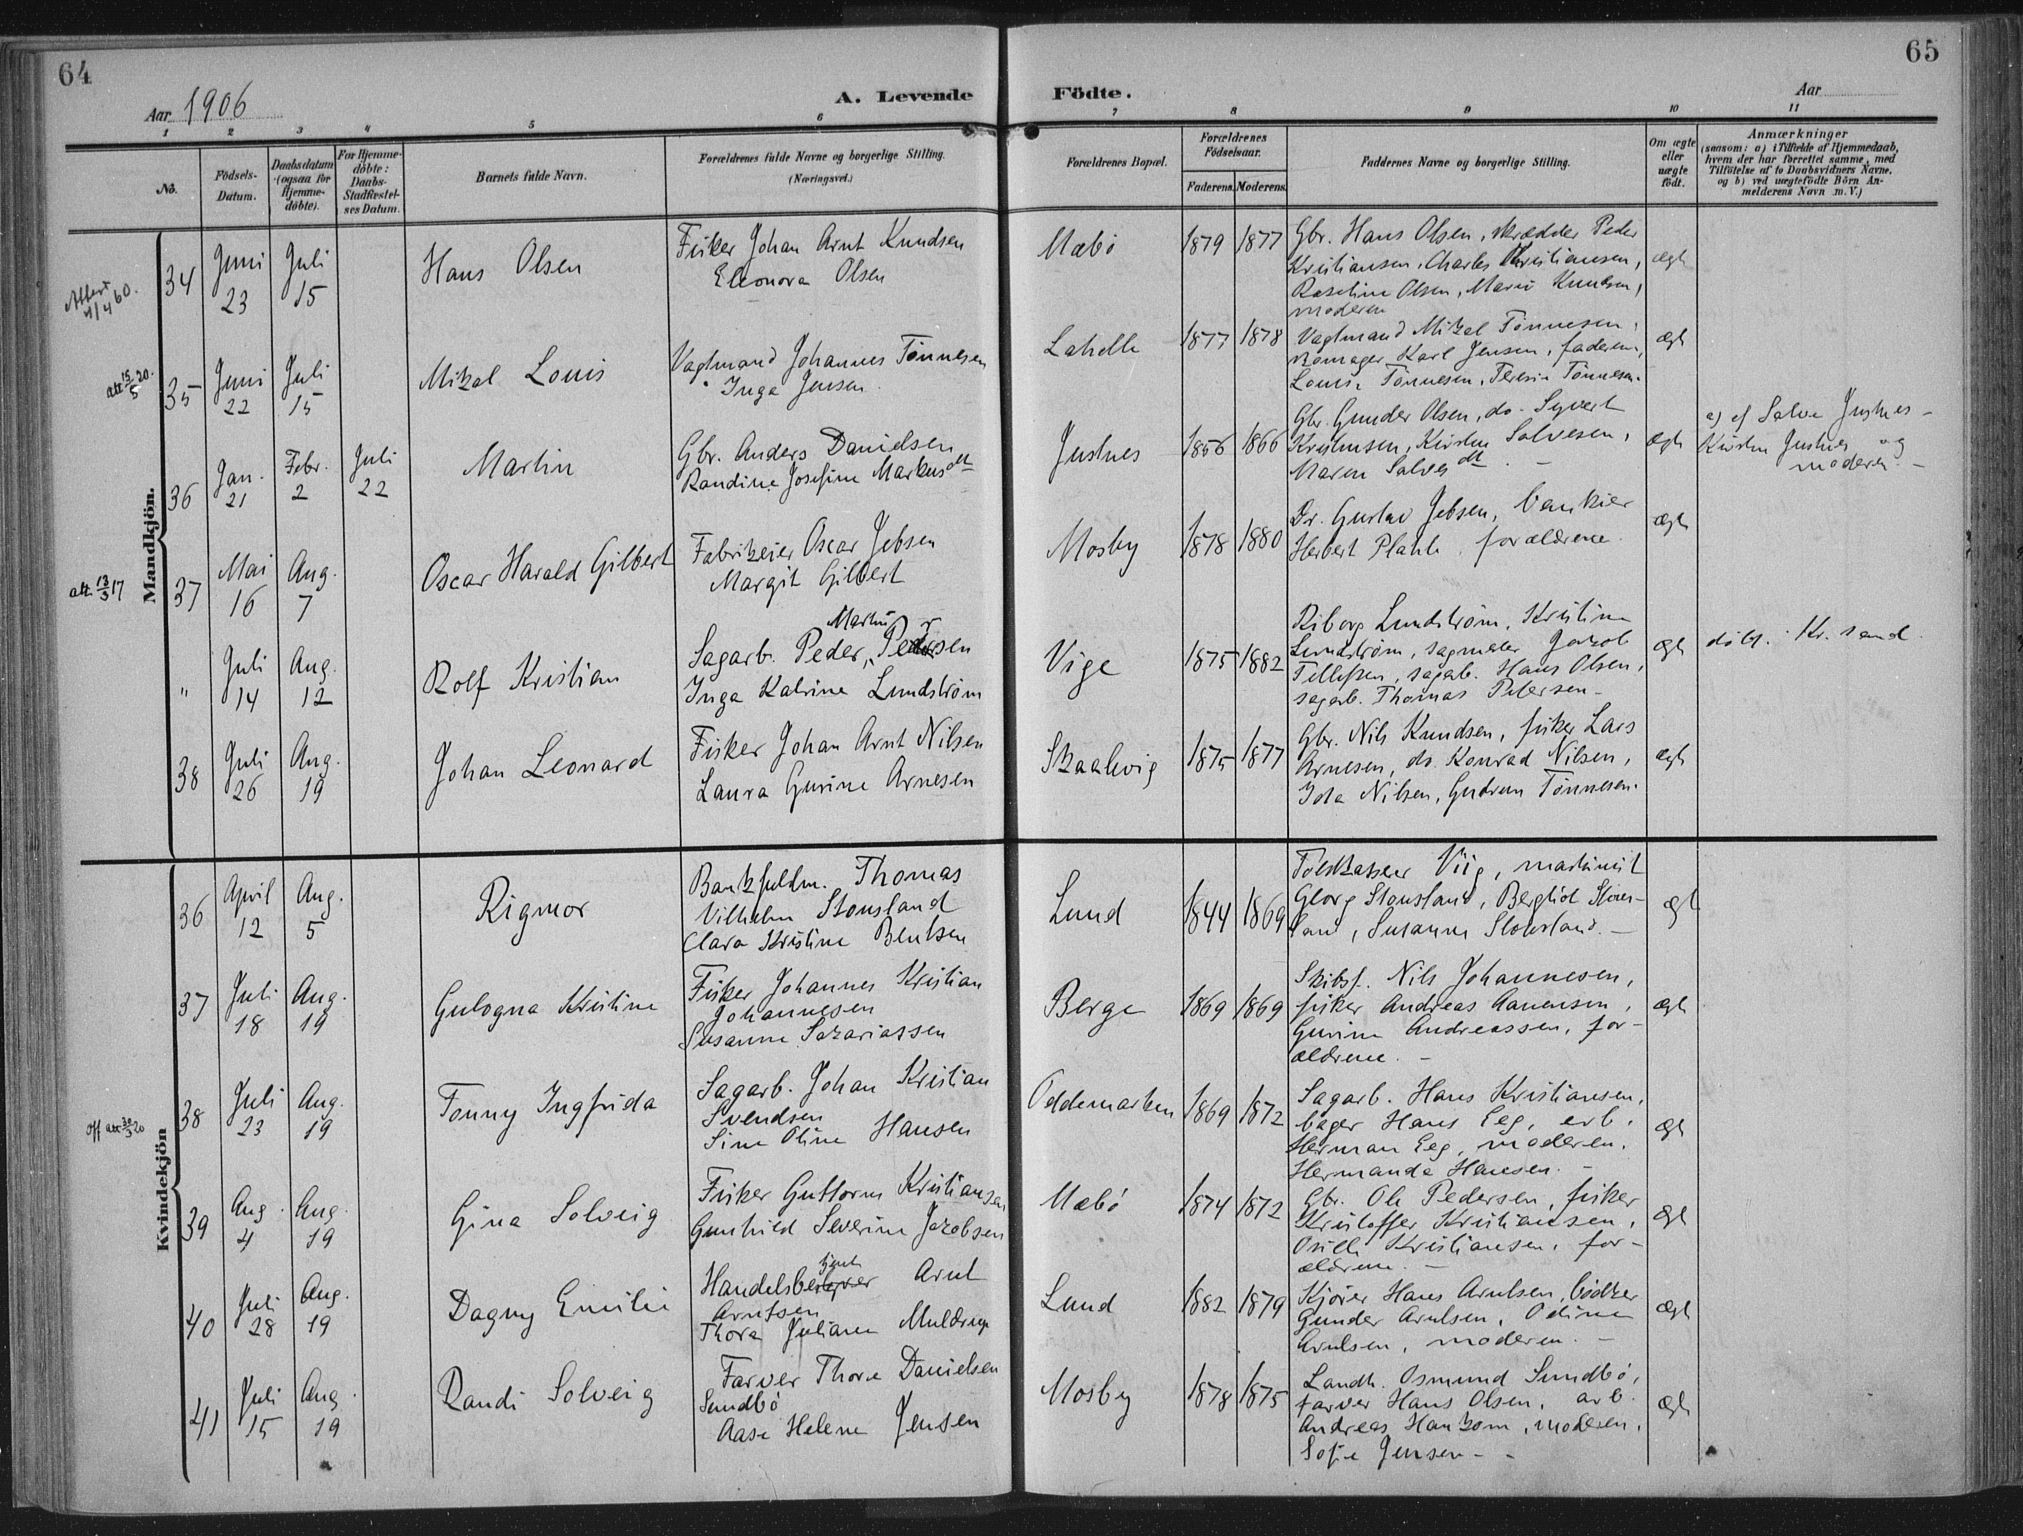 64
65
Aar 1906
A. Levende
Födte.
Aar
1 2 3 4 5 6 7 8 9 10 11
No.
Födsels-
Datum.
Daabsdatum
(ogsaa for
Hjemme-
döbte).
For Hjemme-
döbte:
Daabs-
Stadfæstel-
ses Datum.
Barnets fulde Navn.
Forældrenes fulde Navne og borgerlige Stilling.
(Næringsvei.)
Forældrenes Bopæl.
Forældrenes
Födselsaar.
Faderens. Moderens.
Faddernes Navne og borgerlige Stilling.
Om ægte
eller
uægte
födt.
Anmærkninger
(saasom: a) i Tilfælde af Hjemmedaab,
hvem der har forrettet samme, med
Tilföielse af to Daabsvidners Navne,
og b) ved uægtefödte Börn An-
melderens Navn m. V.)
Mandkjön.
Attest
4/4 60.
34
Juni
23
Juli
15
Hans Olsen
Fisker Johan Arnt Knudsen
Eleonora Olsen
Mæbö
1879
1877
Gbr. Hans Olsen, skrædder Peder
Kristiansen, Charles Kristiansen,
Raseline Olsen, Marie Knudsen,
moderen
ægte
att. 15/5 20.
35
Juni
22
Juli
15
Mikal Louis
Vagtmand Johannes Tönnesen
Inga Jensen
Lahelle
1877
1878
Vagtmand Mikal Tönnesen,
Karl Jensen, faderen,
Louise Tönnesen, Teresie Tönnesen.
ægte
36
Jan.
21
Febr.
2
Juli
22
Martin
Gbr. Anders Danielsen
Randine Josefine Markusdtr
Justnes
1856
1866
Gbr. Gunder Olsen, do. Syvert
Kristensen, Kirsten Salvesen,
Maren Salvesdtr. –
ægte
a) af Salve Justnes –
Kirsten Justnes og
moderen. –
att. 13/3 17
37
Mai
16
Aug.
7
Oscar Harald Gilbert
Fabrikeier Oscar Jebsen
Margit Gilbert
Mosby
1878
1880
Dr. Gustav Jebsen, bankier
Herbert Plahte, forældrene.
ægte
"
Juli
14
Aug.
12
Rolf Kristian
Martin
Sagarb. Peder, Pedersen
Inga Katrine Lundström
Vige
1875
1882
Riborg Lundström, Kristine
Lundström, sagmester Jakob
Tellefsen, sagarb. Hans Olsen,
sagarb. Thomas Petersen –
ægte
döbt. Kr.sand.
38
Juli
26
Aug.
19
Johan Leonard
Fisker Johan Arnt Nilsen
Laura Gurine Arnesen
Skaalevig
1875
1877
Gbr. Nils Knudsen, fisker Lars
Arnesen, do. Konrad Nilsen,
Ida Nilsen, Gudrun Tönnesen.
ægte
Kvindekjön
36
April
12
Aug.
5
Rigmor
Bankfuldm. Thomas
Vilhelm Stousland
Clara Kristine Bentsen
Lund
1844
1869
Toldkasserer Viig, maskinist
Georg Stousland, Bergliot Stous-
land, Susanne Stousland. –
ægte
37
Juli
18
Aug.
19
Gulogna Kristine
Fisker Johannes Kristian
Johannesen
Susanne Sakariassen
Berge
1869
1869
Skibsf. Nils Johannesen,
fisker Andreas Aanensen,
Gurine Andreassen, for-
ældrene. –
ægte
off att 30/3 20
38
Juli
23
Aug.
19
Fonny Ingfrida
Sagarb. Johan Kristian
Svendsen
Sine Oline Hansen
Oddemarken
1869
1872
Sagarb. Hans Kristiansen,
bager Hans Eeg, arb.
Herman Eeg, moderen.
Hermanda Hansen. –
ægte
39
Aug.
4
Aug.
19
Gina Solveig
Fisker Guttorm Kristiansen
Gunhild Severine Jakobsen
Mæbö
1874
1872
Gbr. Ole Pedersen, fisker
Kristoffer Kristiansen,
Osille Kristiansen, for-
ældrene. –
ægte
40
Juli
28
Aug.
19
Dagny Emilie
tjent
Handelsbestyrer Arnt
Arntsen
Thora Juliane Muldrup
Lund
1882
1879
Kjörer Hans Arntsen, bödker
Gunder Arntsen, Odine
Arntsen, moderen. –
ægte
41
Juli
15
Aug.
19
Randi Solveig
Farver Thore Danielsen
Sundbö
Aase Helene Jensen
Mosby
1878
1875
Landh. Osmund Sundbö,
farver Hans Olsen, arb.
Andreas Hankom, moderen,
Sofie Jensen – –
ægte